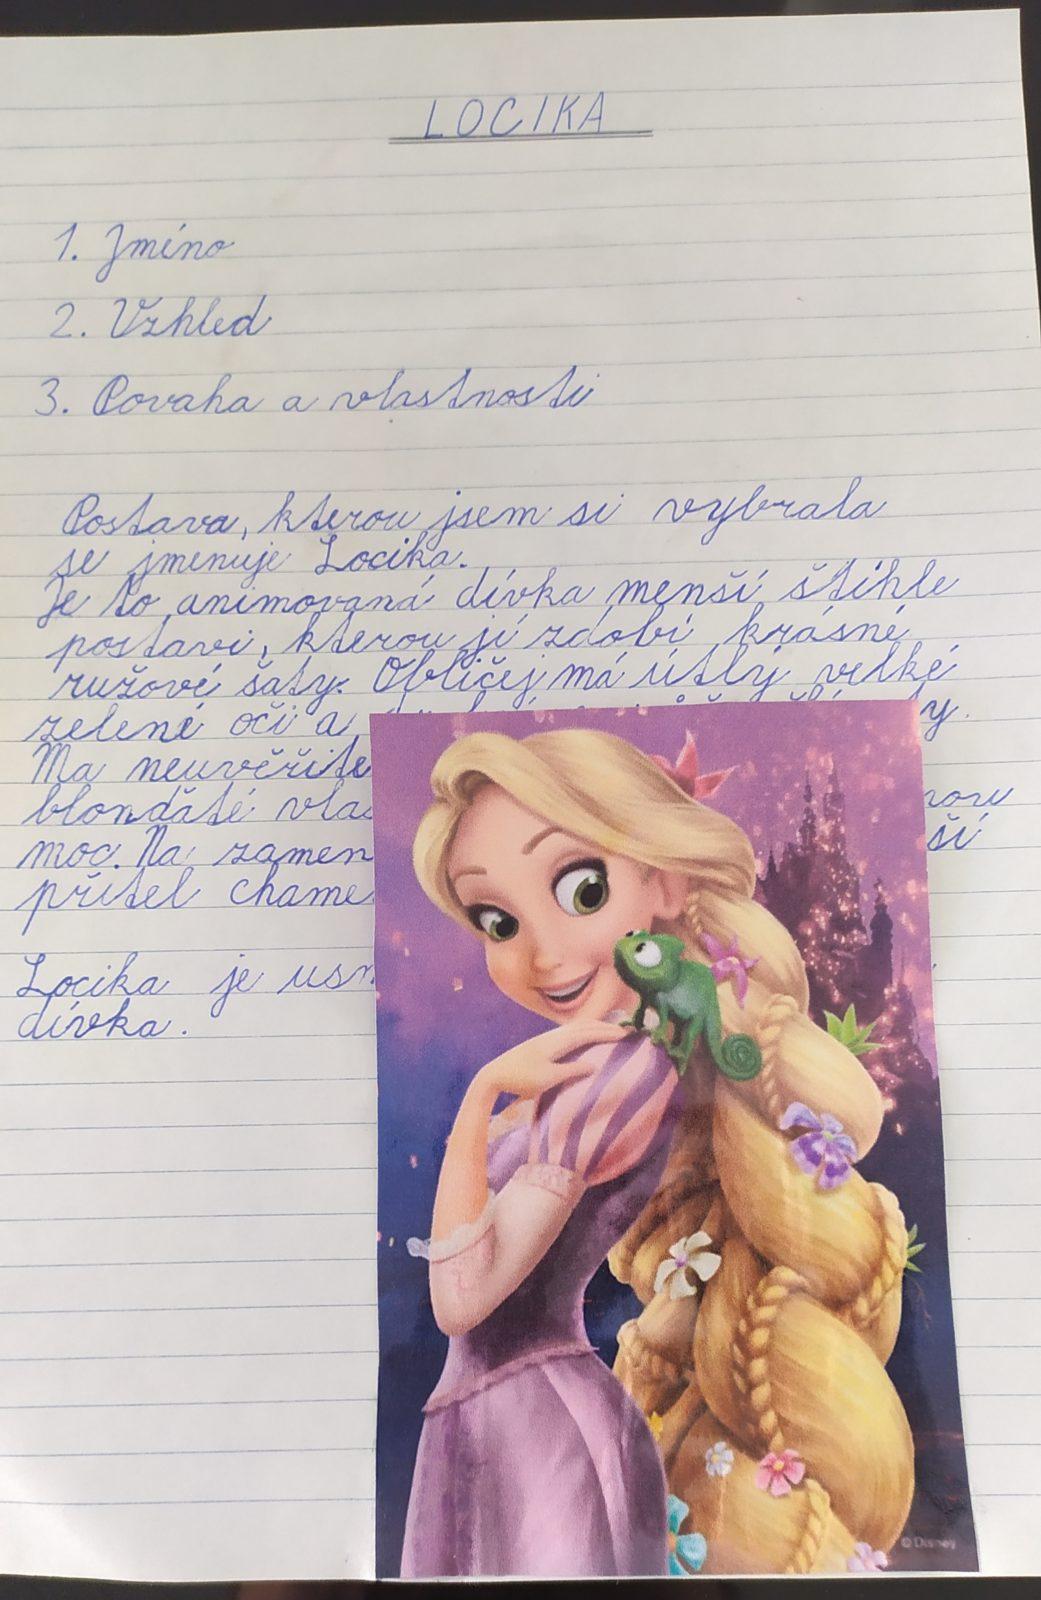 LOCIKA
1. Jméno
2. Vzhled
3. Povaha a vlastnosti
Postava, kterou jsem si vybrala
se jmenuje Locika.
Je to animovaná dívka menší štíhle
postavi, kterou jí zdobí krásné
ružové šaty. Obličej má útlý velké
zelené oči a
Ma neuvěřite
blonďaté vlas
moc. Na zamen ší
přítel chame
Locika je usm
dívka.
© Disney